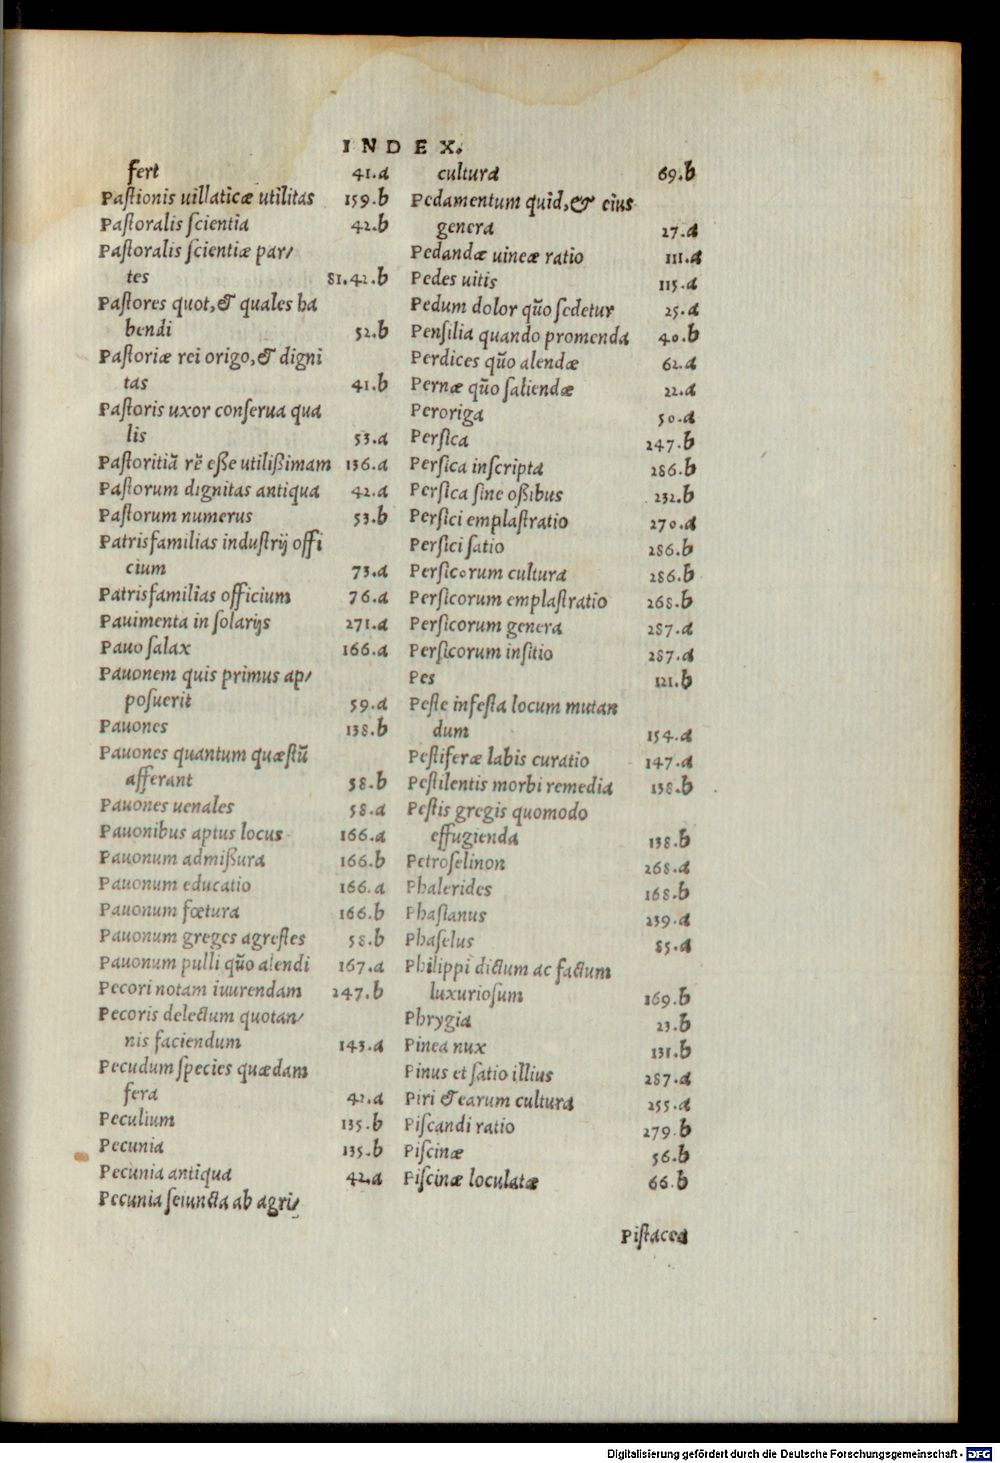 INDEX.
fert 41.a
Paſtionis uillaticæ utilitas 159.b
Paſtoralis ſcientia 42.b
Paſtoralis ſcientiæ par/
tes 81.42.b
Paſtores quot,& quales ha
bendi 52.b
Paſtoriæ rei origo,& digni
tas 41.b
Paſtoris uxor conſerua qua
lis 53.a
Paſtoritiā rē eße utilißimam 136.a
Paſtorum dignitas antiqua 42.a
Paſtorum numerus 53.b
Patrisfamilias induſtrij offi
cium 73.a
Patrisfamilias officium 76.a
Pauimenta in ſolarijs 271.a
Pauo ſalax 166.a
Pauonem quis primus ap/
poſuerit 59.a
Pauones 138.b
Pauones quantum quæſtū
afferant 58.b
Pauones uenales 58.a
Pauonibus aptus locus 166.a
Pauonum admißura 166.b
Pauonum educatio 166.a
Pauonum fœtura 166.b
Pauonum greges agreſtes 58.b
Pauonum pulli qūo alendi 167.a
Pecori notam iuurendam 247.b
Pecoris delectum quotan/
nis faciendum 143.a
Pecudum ſpecies quædam
fera 42.a
Peculium 135.b
Pecunia 135.b
Pecunia antiqua 42.a
Pecunia ſeiuncta ab agri/
cultura 69.b
Pedamentum quid,& eius
genera 27.a
Pedandæ uineæ ratio 111.a
Pedes uitis 115.a
Pedum dolor qūo ſedetur 25.a
Penſilia quando promenda 40.b
Perdices qūo alendæ 62.a
Pernæ qūo ſaliendæ 22.a
Peroriga 50.a
Perſica 247.b
Perſica inſcripta 286.b
Perſica ſine oßibus 232.b
Perſici emplaſtratio 270.a
Perſici ſatio 286.b
Perſicorum cultura 286.b
Perſicorum emplaſtratio 268.b
Perſicorum genera 287.a
Perſicorum inſitio 287.a
Pes 121.b
Peſte infeſta locum mutan
dum 154.a
Peſtiferæ labis curatio 147.a
Peſtilentis morbi remedia 138.b
Peſtis gregis quomodo
effugienda 138.b
Petroſelinon 268.a
Phalerides 168.b
Phaſianus 239.a
Phaſelus 85.a
Philippi dictum ac factum
luxurioſum 169.b
Phrygia 23.b
Pinea nux 131.b
Pinus et ſatio illius 287.a
Piri & earum cultura 255.a
Piſcandi ratio 279.b
Piſcinæ 56.b
Piſcinæ loculatæ 66.b
Piſtacea
Digitalisierung gefördert durch die Deutsche Forschungsgemeinschaft - DFG